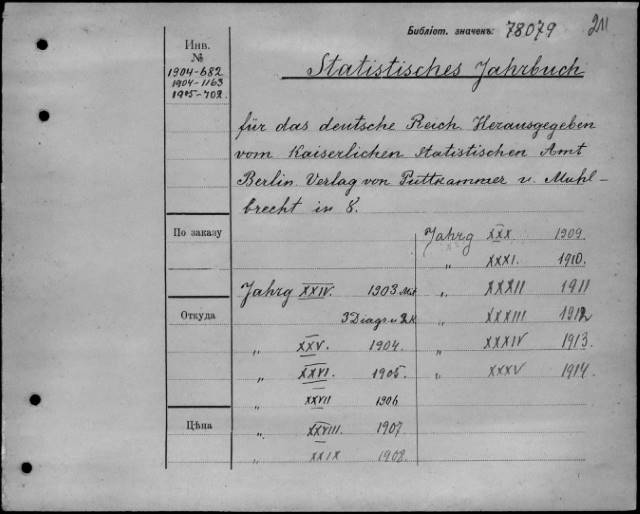 Библіот. значенъ: 78079 211
Инв.
№
1904-682
1904-1163
1905-702.
Statistisches Jahrbuch
für das deutsche Reich. Herausgegeben
vom Kaiserlichen Statistischen Amt
Berlin. Verlag von Puttkammer u. Muhl-
brecht in 8.
По заказу
Откуда
Цѣна
Jahrg XXIV. 1903 Mit
3 Diagr. u 2 K
„ XXV. 1904.
„ XXVI. 1905.
„ XXVII 1906
„ XXVIII. 1907
„ XXIX 1908.
Jahrg XXX 1909.
„ XXXI. 1910.
„ XXXII 1911
„ XXXIII 1912
„ XXXIV 1913.
„ XXXV 1914.